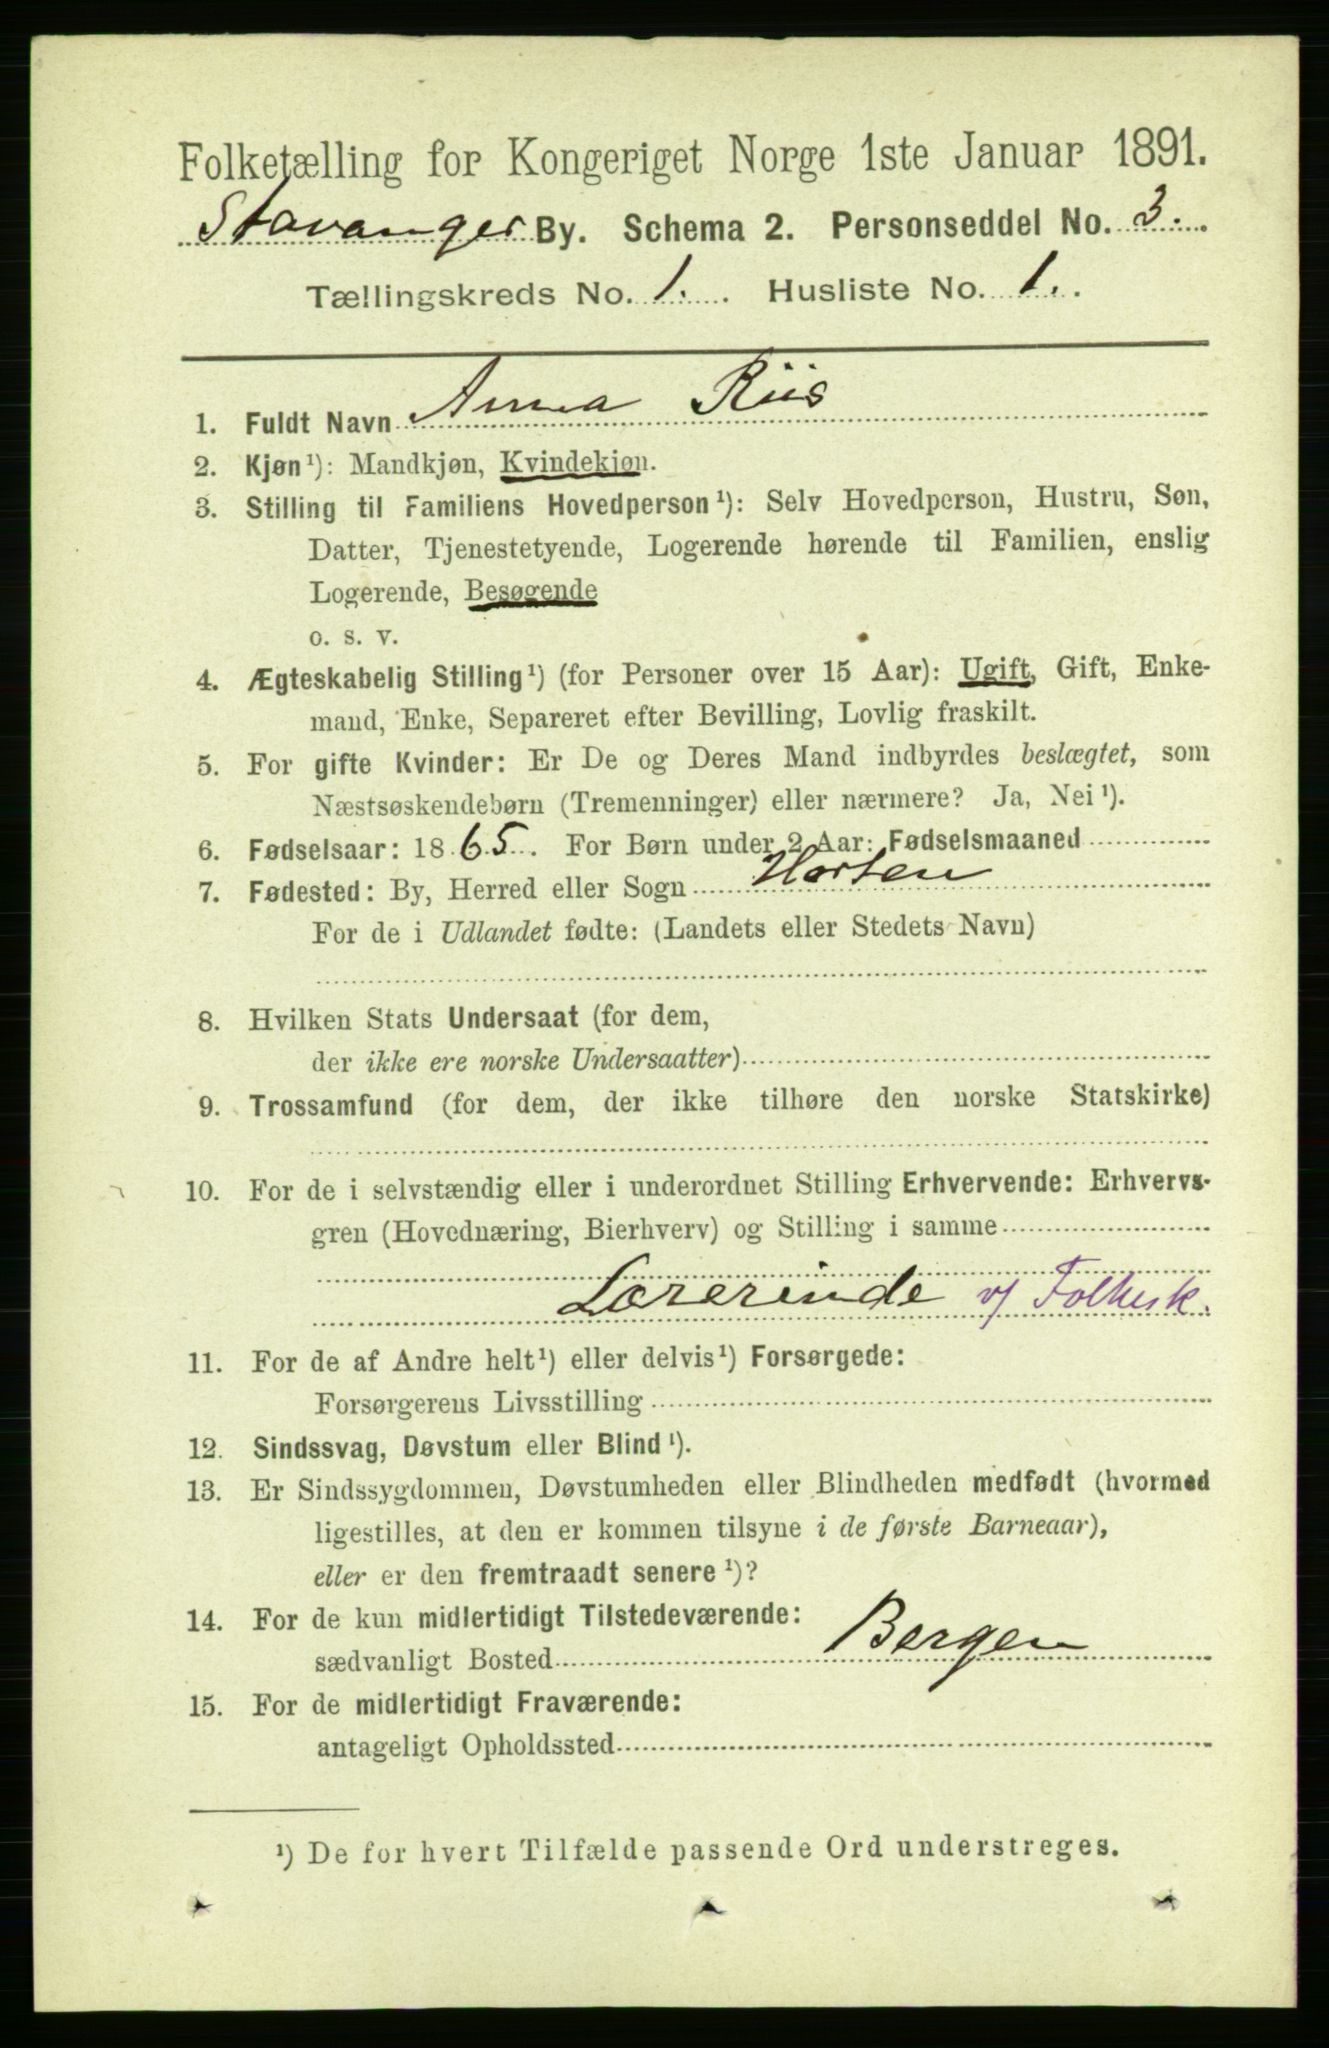 Folketælling for Kongeriget Norge 1ste Januar 1891.
Stavanger By. Schema 2. Personseddel No. 3.
Tællingskreds No. 1. Husliste No. 1.
1. Fuldt Navn Anna Riis
2. Kjøn¹): Mandkjøn, Kvindekjøn.
3. Stilling til Familiens Hovedperson¹): Selv Hovedperson, Hustru, Søn,
Datter, Tjenestetyende, Logerende hørende til Familien, enslig
Logerende, Besøgende
o. s. v.
4. Ægteskabelig Stilling¹) (for Personer over 15 Aar): Ugift, Gift, Enke-
mand, Enke, Separeret efter Bevilling, Lovlig fraskilt.
5. For gifte Kvinder: Er De og Deres Mand indbyrdes beslægtet, som
Næstsøskendebørn (Tremenninger) eller nærmere? Ja, Nei¹).
6. Fødselsaar: 1865. For Børn under 2 Aar: Fødselsmaaned
7. Fødested: By, Herred eller Sogn Horten
For de i Udlandet fødte: (Landets eller Stedets Navn)
8. Hvilken Stats Undersaat (for dem,
der ikke ere norske Undersaatter)
9. Trossamfund (for dem, der ikke tilhøre den norske Statskirke)
10. For de i selvstændig eller i underordnet Stilling Erhvervende: Erhvervs-
gren (Hovednæring, Bierhverv) og Stilling i samme
Lærerinde v/ Folkesk.
11. For de af Andre helt¹) eller delvis¹) Forsørgede:
Forsørgerens Livsstilling
12. Sindssvag, Døvstum eller Blind¹).
13. Er Sindssygdommen, Døvstumheden eller Blindheden medfødt (hvormed
ligestilles, at den er kommen tilsyne i de første Barneaar),
eller er den fremtraadt senere¹)?
14. For de kun midlertidigt Tilstedeværende:
sædvanligt Bosted Bergen
15. For de midlertidigt Fraværende:
antageligt Opholdssted
¹) De for hvert Tilfælde passende Ord understreges.